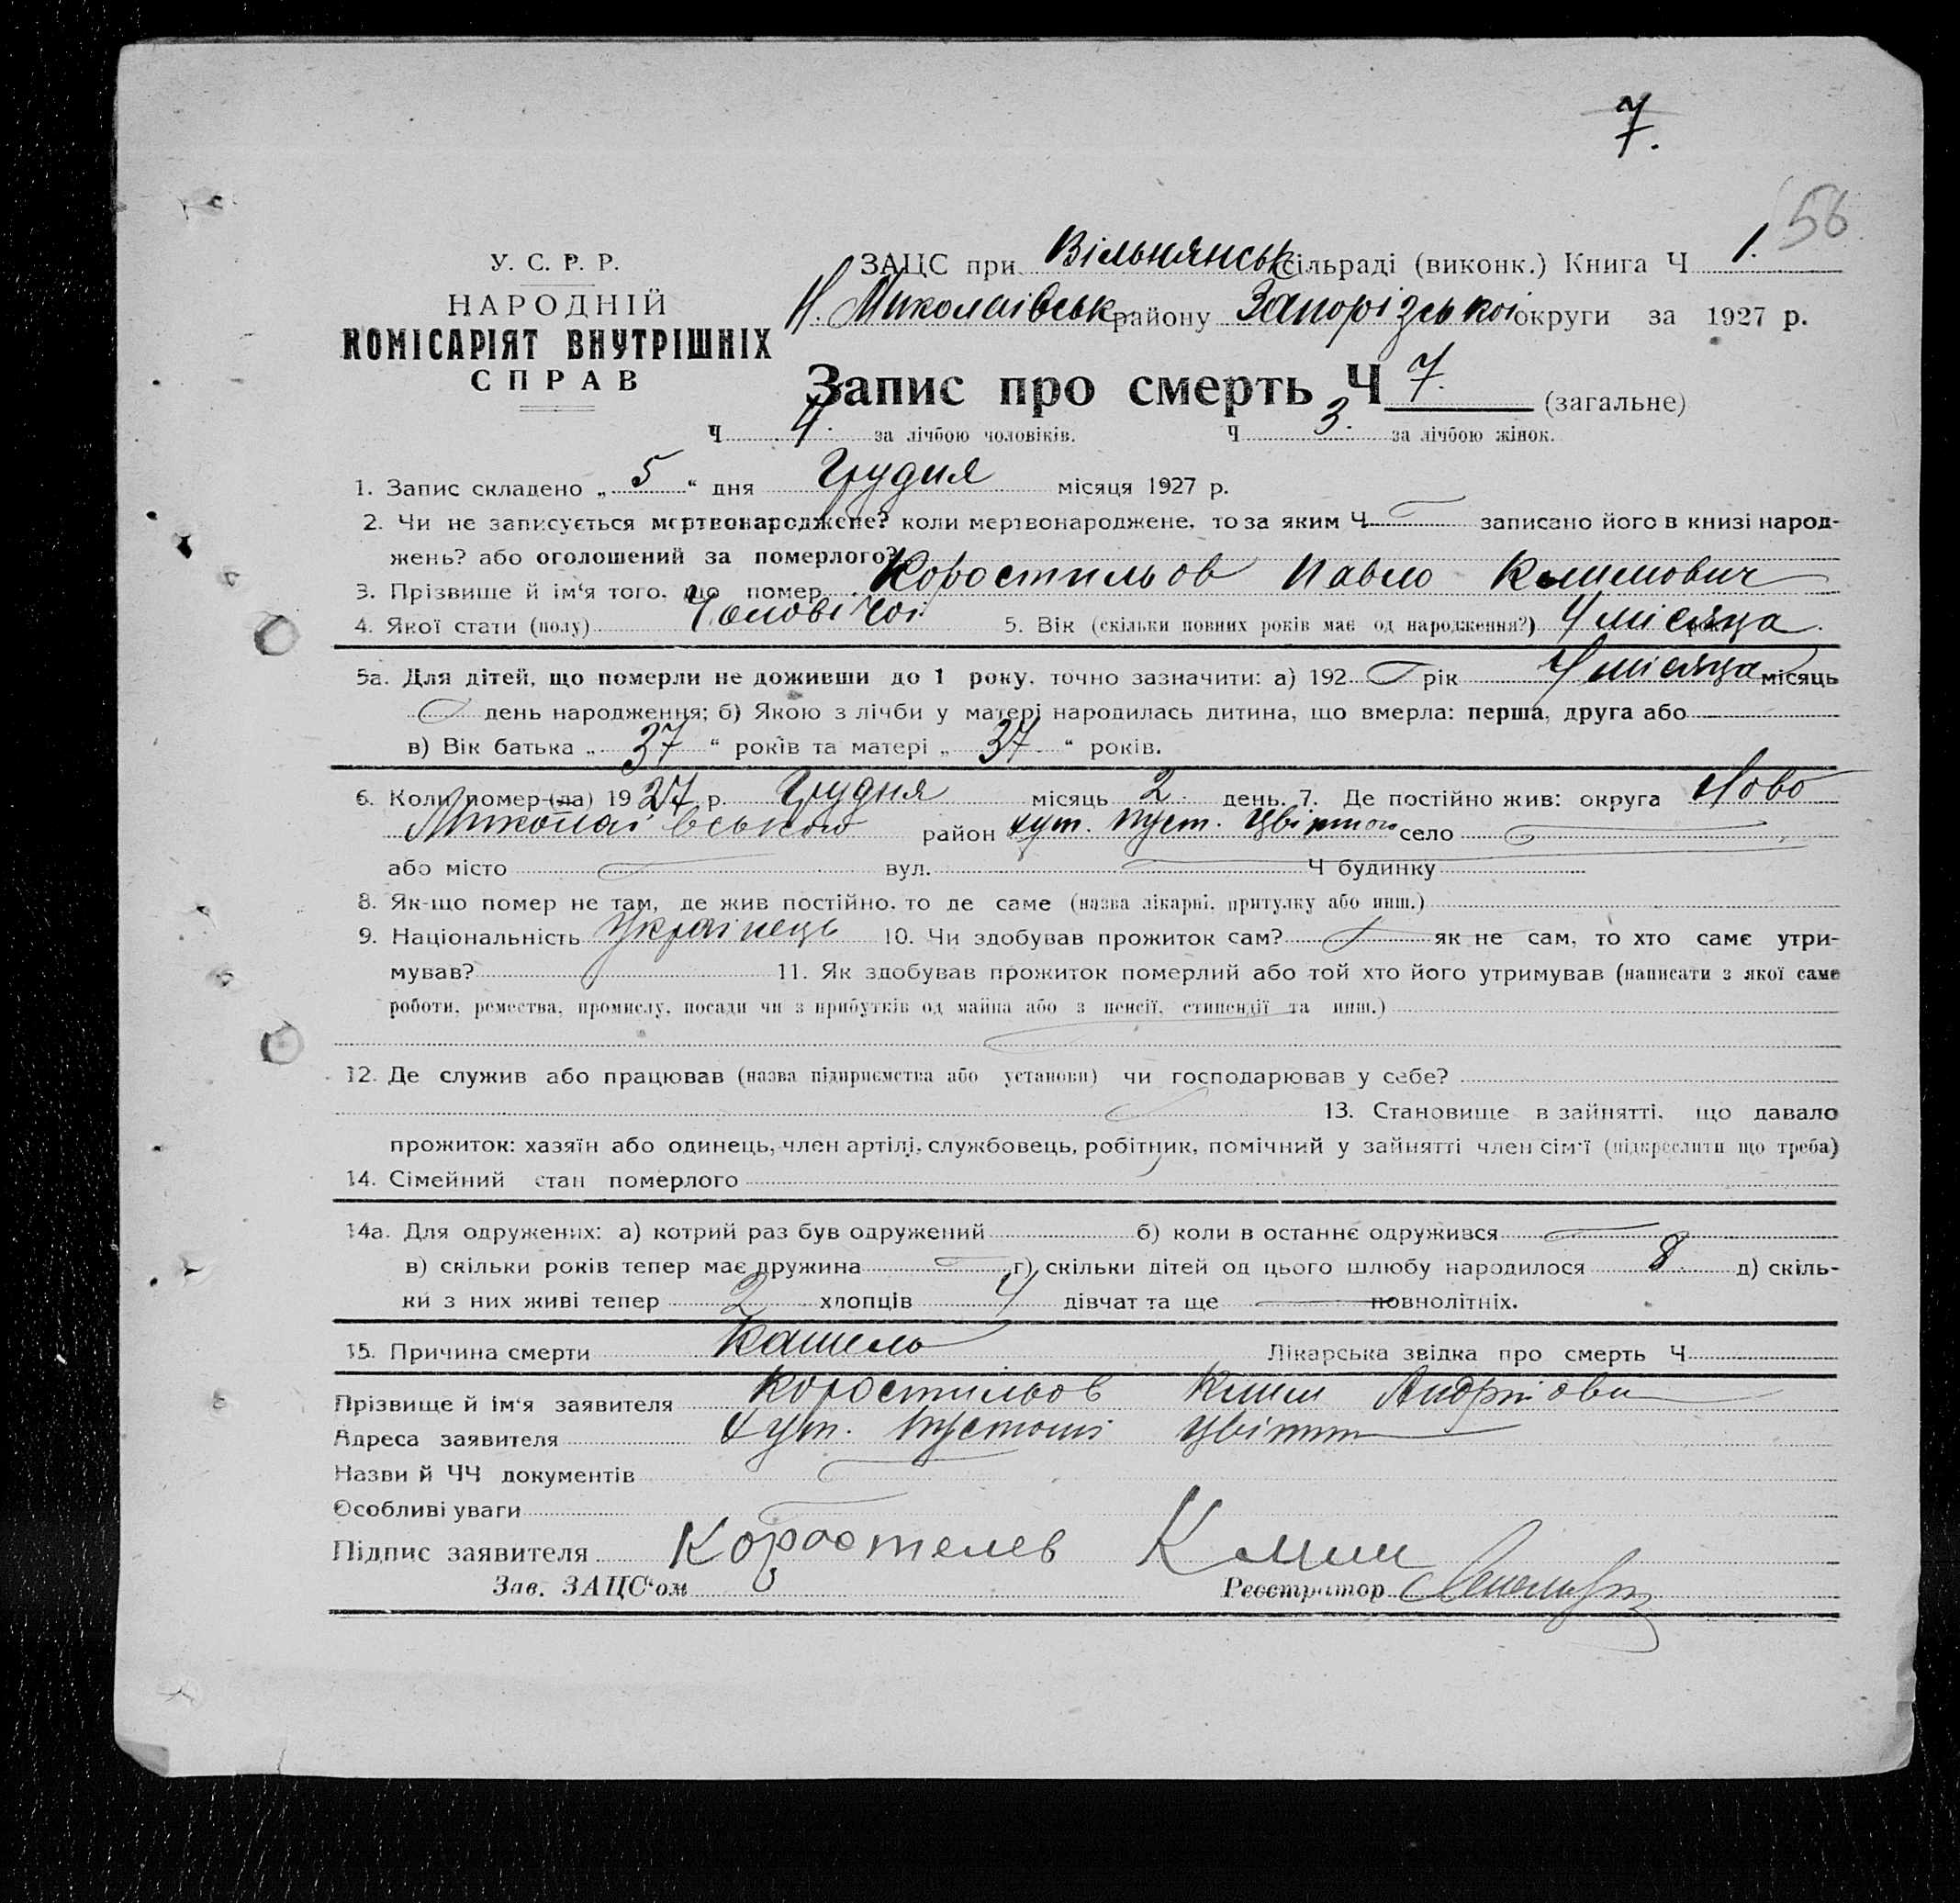 7.
56
У. С. Р. Р.
НАРОДНІЙ
КОМІСАРІЯТ ВНУТРІШНІХ
СПРАВ
ЗАЦС при Вільнянськ сільраді (виконк.) Книга Ч 1.
Н. Миколаівськ району Запорізькоі округи за 1927 р.
Запис про смерть Ч 7. (загальне)
Ч 4. за лічбою чоловіків. Ч 3. за лічбою жінок.
1. Запис складено „ 5 “ дня Грудня місяця 1927 р.
2. Чи не записується мертвонароджене? коли мертвонароджене, то за яким Ч записано його в книзі народ-
жень? або оголошений за померлого?
3. Прізвище й ім‘я того, що помер Коростильов Павло Климович
4. Якої стати (полу) Чоловічоі 5. Вік (скільки повних років має од народження?) 4 місяца
5а. Для дітей, що померли не доживши до 1 року, точно зазначити: а) 192 рік 4 місяца місяць
день народження; б) Якою з лічби у матері народилась дитина, що вмерла: перша, друга або
в) Вік батька „ 37 “ років та матері „ 37 “ років.
6. Коли помер-(ла) 1927 р. Грудня місяць 2 день. 7. Де постійно жив: округа Ново
Миколаівського район хут. Пуст. Цвіт село
або місто вул. Ч будинку
8. Як-що помер не там, де жив постійно, то де саме (назва лікарні, притулку або инш.)
9. Національність Украінець 10. Чи здобував прожиток сам? як не сам, то хто саме утри-
мував? 11. Як здобував прожиток померлий або той хто його утримував (написати з якої саме
роботи, ремества, промислу, посади чи з прибутків од майна або з пенсії, стипендії та инш.)
12. Де служив або працював (назва підприємства або установи) чи господарював у себе?
13. Становище в зайнятті, що давало
прожиток: хазяїн або одинець, член артілі, службовець, робітник, помічний у зайнятті член сім‘ї (підкреслити що треба)
14. Сімейний стан померлого
14а. Для одружених: а) котрий раз був одружений б) коли в останнє одружився
в) скільки років тепер має дружина г) скільки дітей од цього шлюбу народилося 8 д) скіль-
ки з них живі тепер 2 хлопців 4 дівчат та ще повнолітніх.
15. Причина смерти Кашель Лікарська звідка про смерть Ч
Прізвище й ім‘я заявителя Коростильов Клим Андріови
Адреса заявителя хут. Цвіт
Назви й ЧЧ документів
Особливі уваги
Підпис заявителя Коростелев Клим
Зав. ЗАЦС‘ом Реєстратор